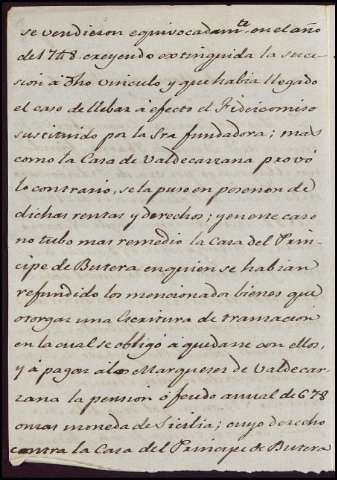 se vendieron equivocadamte. en el año
de 1748 creyendo extinguida la suce-
sion à dho vinculo y que habia llegado
el caso de llebar à efecto el Fideicomiso
sustituido por la Sra fundadora; mas
como la Casa de Valdecarzana provó
lo contrario, se la puso en posesion de
dichas rentas y derechos; y en este caso
no tubo mas remedio la Casa del Prin-
cipe de Butera en quien se habian
refundido los mencionados bienes que
otorgar una Escritura de transacion
en la cual se obligó a quedarse con ellos,
y à pagar à los Marqueses de Valdecar-
zana la pension ó feudo anual de 678
onzas moneda de Sicilia; cuyo derecho
contra la Casa del Principe de Butera